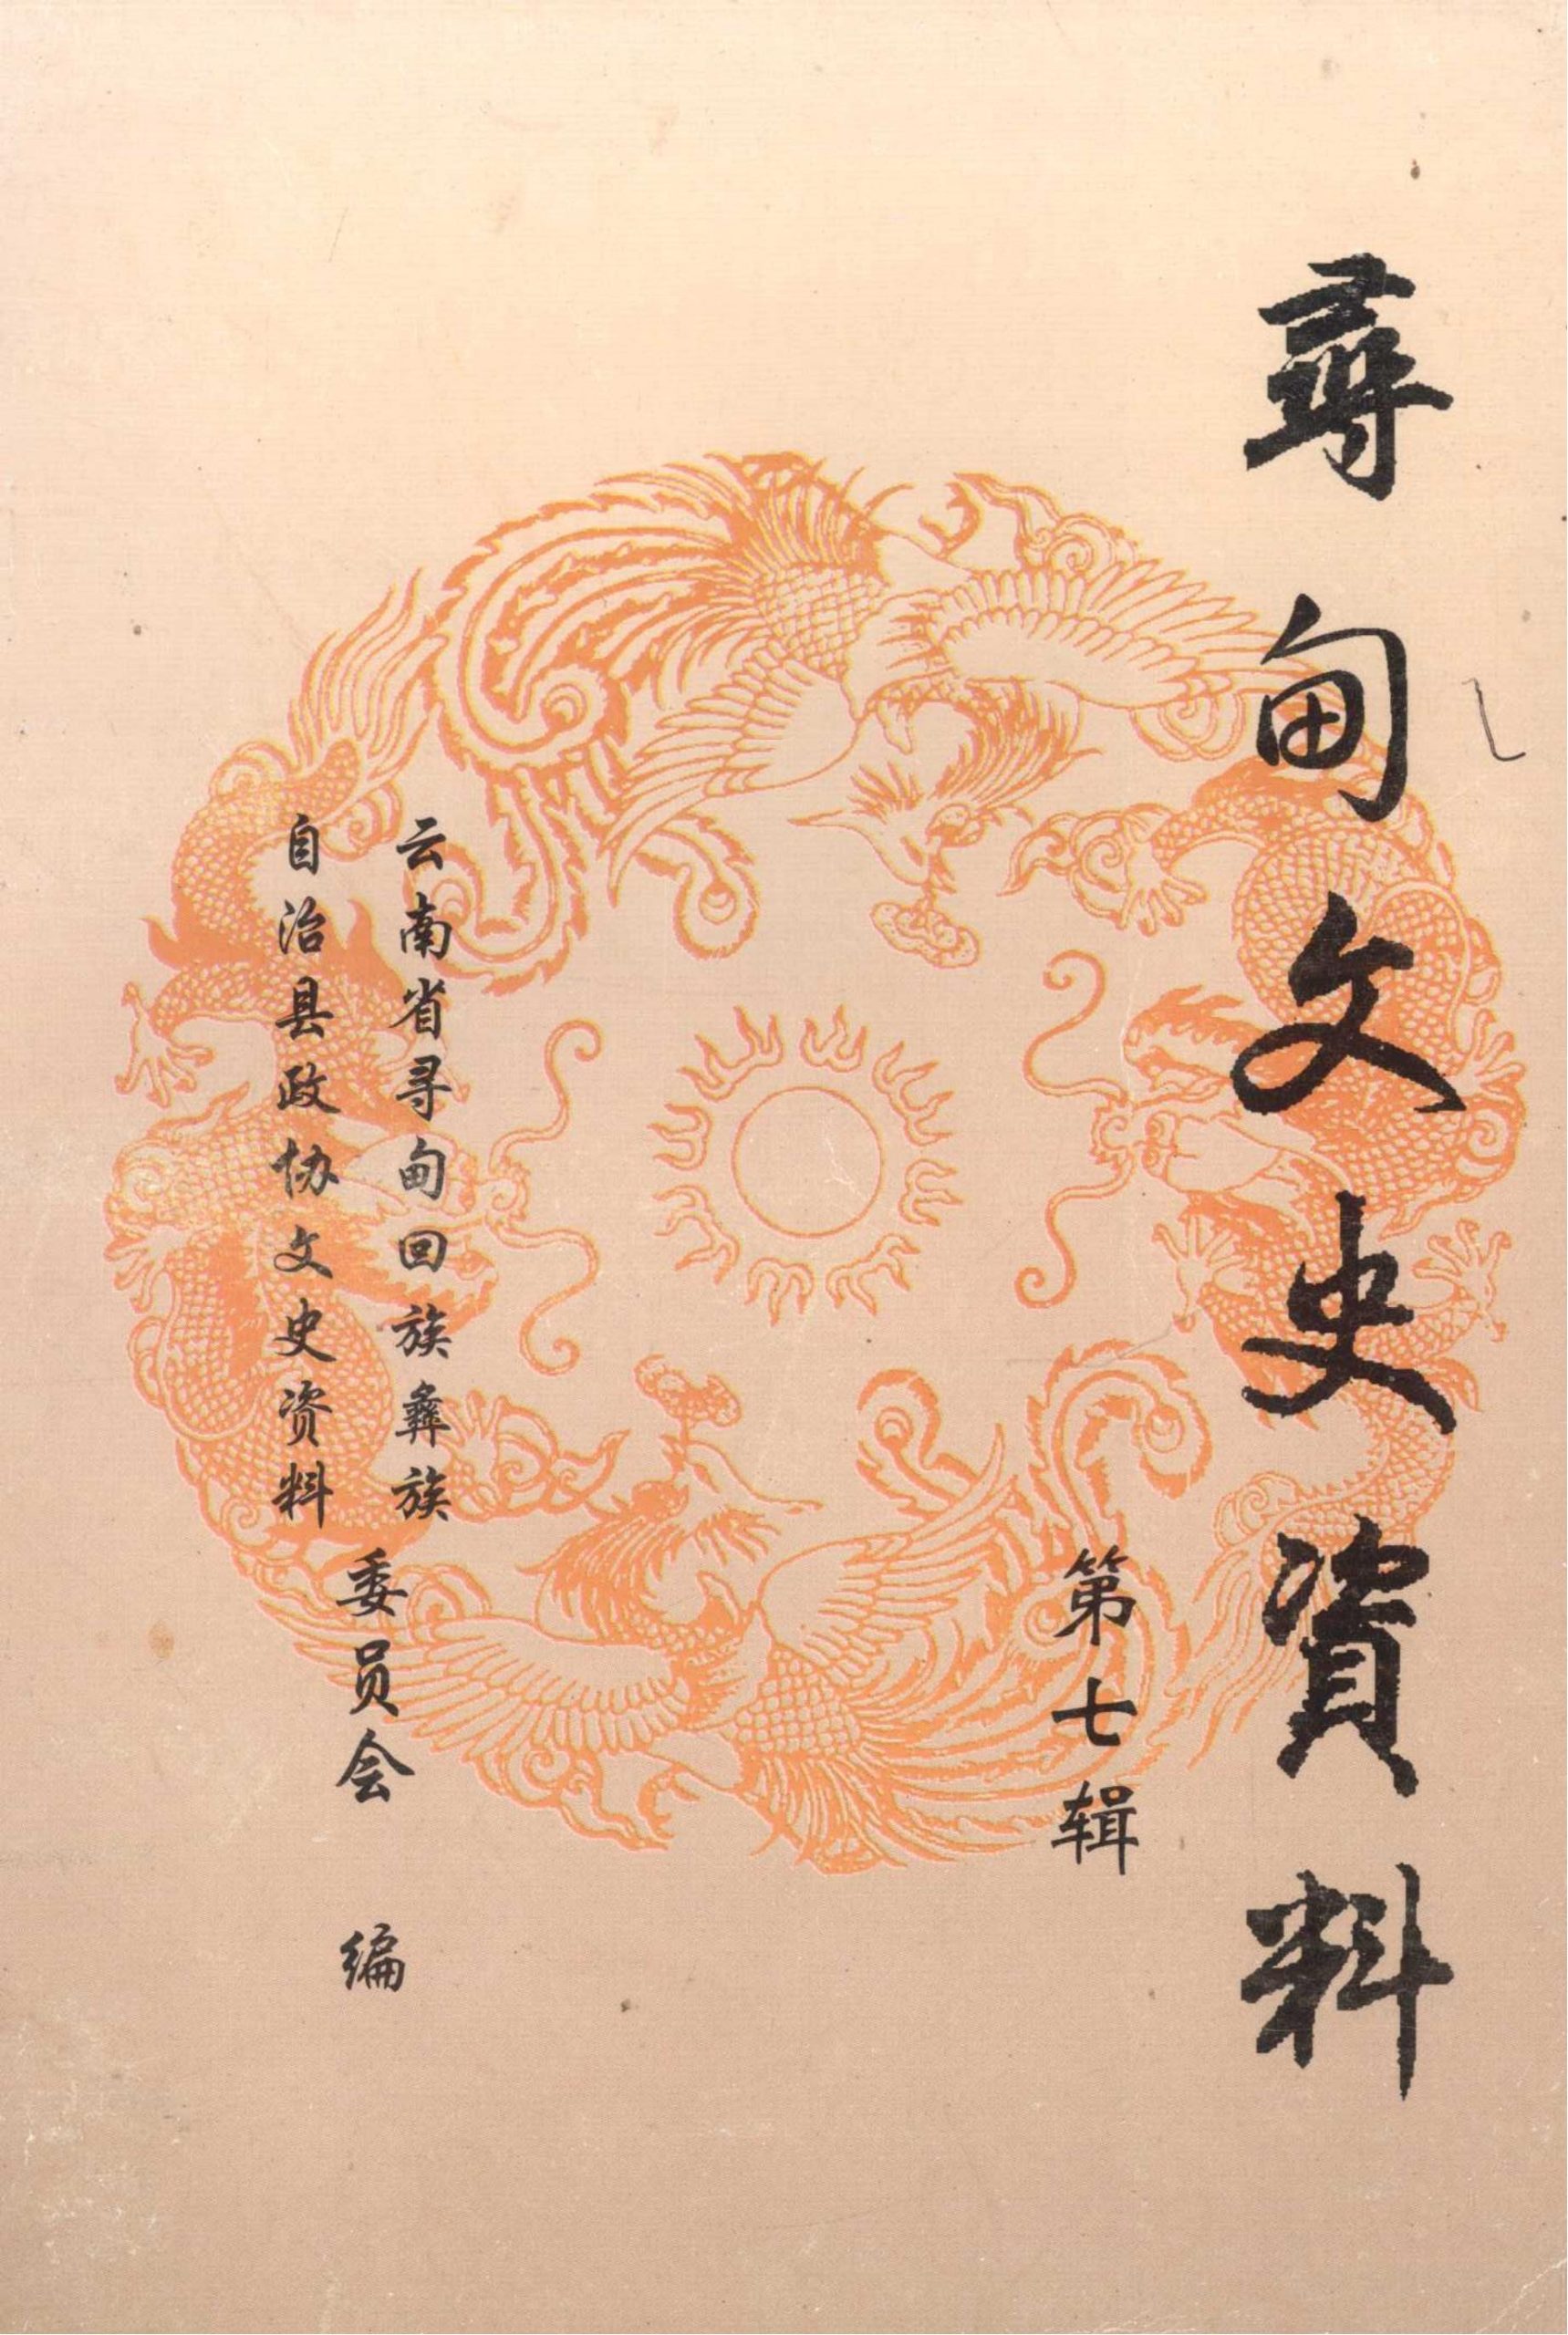 尋甸文史資料
第七辑
云南省寻甸回族彝族
自治县政协文史资料
委员会 编